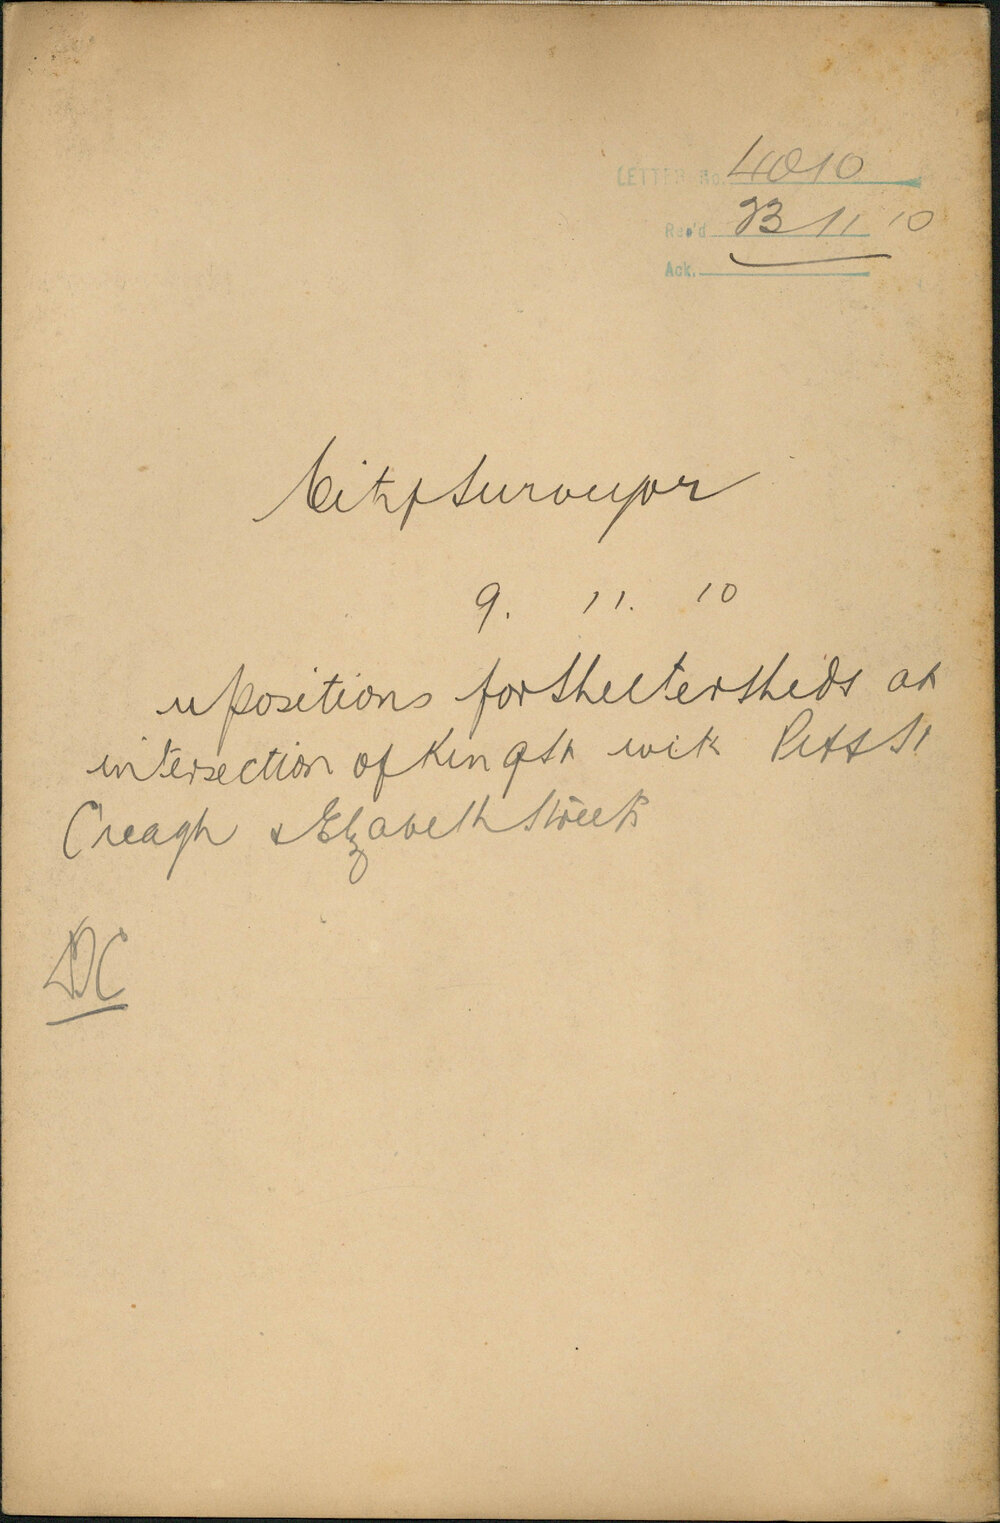 LETTER No. 4010
Rec'd 23 11 10
Ack.
City Surveyor
9. 11. 10
positions for Shelter sheds at
intersection of King St with Pitt St
Creagh & Elizabeth Streets
DC